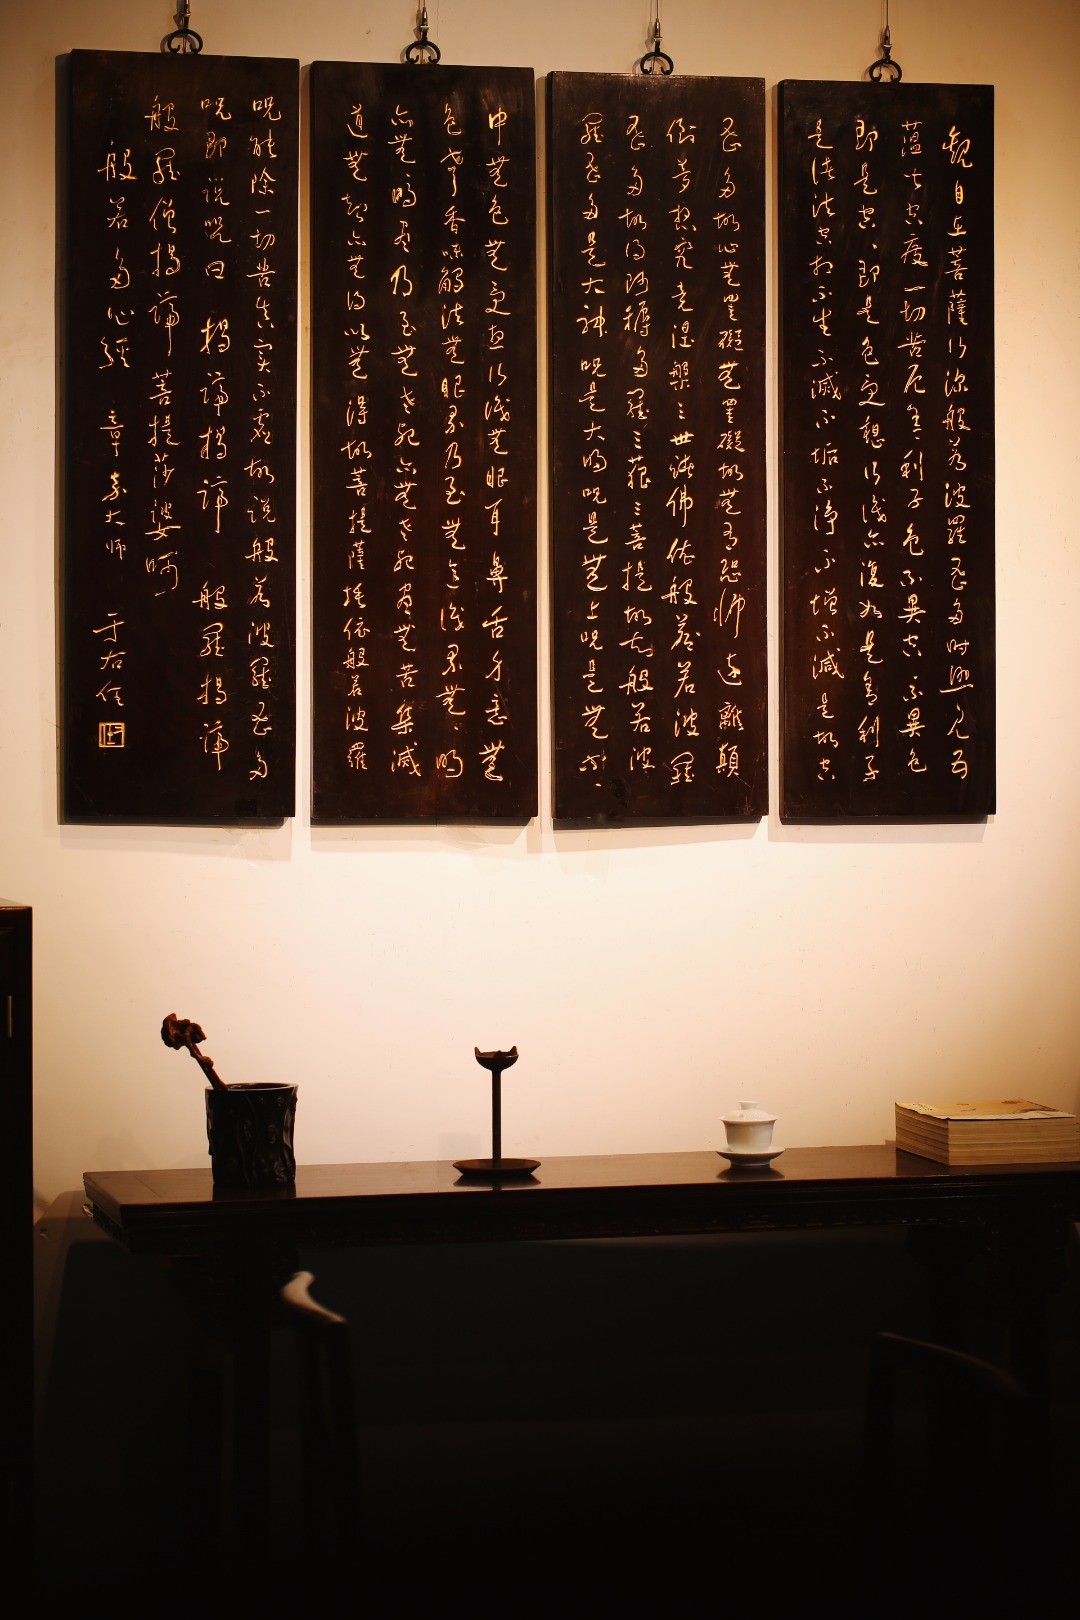 觀自在菩薩行深般若波羅蜜多時照見五
蘊皆空度一切苦厄舍利子色不異空、不異色
即是空、即是色受想行識亦復如是舍利子
是諸法空相不生不滅不垢不淨不增不減是故空
蜜多故心無罣礙無罣礙故無有恐怖遠離顛
倒夢想究竟涅槃三世諸佛依般若波羅
蜜多故得阿耨多羅三藐三菩提故知般若波
羅蜜多是大神呪是大明呪是無上呪是無等、
中無色無受想行識無眼耳鼻舌身意無
色聲香味觸法無眼界乃至無意識界無、明
亦無明盡乃至無老死亦無老死盡無苦集滅
道無智亦無得以無得故菩提薩埵依般若波羅
呪能除一切苦真實不虛故說般若波羅蜜多
呪即說呪曰 揭諦揭諦 般羅揭諦
般羅僧揭諦 菩提莎婆呵
般若多心經 章嘉大師 于右任